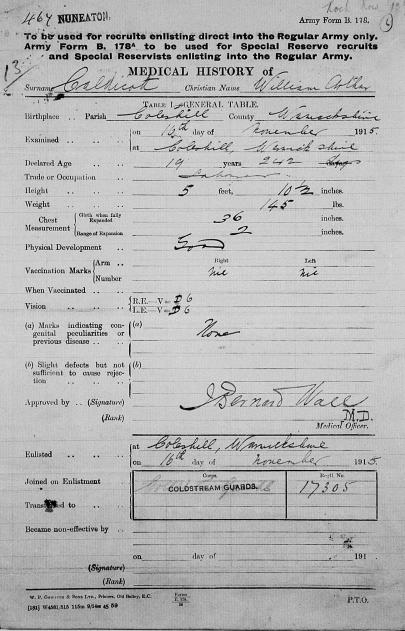 467 NUNEATON.
Army Form B. 178.
To be used for recruits enlisting direct into the Regular Army only.
Army Form B. 178A to be used for Special Reserve recruits
and Special Reservists enlisting into the Regular Army.
13
MEDICAL HISTORY of
Surname Caldicott Christian Name William Arthur
TABLE I.—GENERAL TABLE.
Birthplace .. Parish Coleshill County Warwickshire
on 16th day of November 1915.
Examined .. .. ..
at Coleshill, Warwickshire
Declared Age .. .. 19 years 242 days
Trade or Occupation .. Labourer
Height .. .. .. 5 feet, 10½ inches.
Weight .. .. .. 145 lbs.
Chest Measurement
Girth when fully Expanded 36 inches.
Range of Expansion 2 inches.
Physical Development .. Good
Right Left
Vaccination Marks Arm .. nil nil
Number
When Vaccinated .. ..
Vision .. .. .. R.E.—V= D 6
L.E.—V= D 6
(a) Marks indicating congenital peculiarities or previous disease .. (a) None
(b) Slight defects but not sufficient to cause rejection .. .. .. (b)
Approved by .. (Signature) J Bernard Wall
(Rank) M.D.
Medical Officer.
at Coleshill, Warwickshire
Enlisted .. .. ..
on 16th day of November 1915.
Corps. Regtl. No.
Joined on Enlistment COLDSTREAM GUARDS. 17305
Transferred to .. ..
Became non-effective by ..
on day of 191 .
(Signature)
(Rank)
P.T.O.